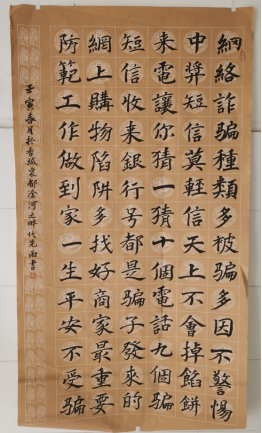 網絡詐騙種類多被騙多因不警惕
中獎短信莫輕信天上不會掉餡餅
来電讓你猜一猜十個電話九個騙
短信收来銀行号都是騙子發来的
網上購物陷阱多找好商家最重要
防範工作做到家一生平安不受騙
壬寅春月於香城泉都淦河之畔代先雨書